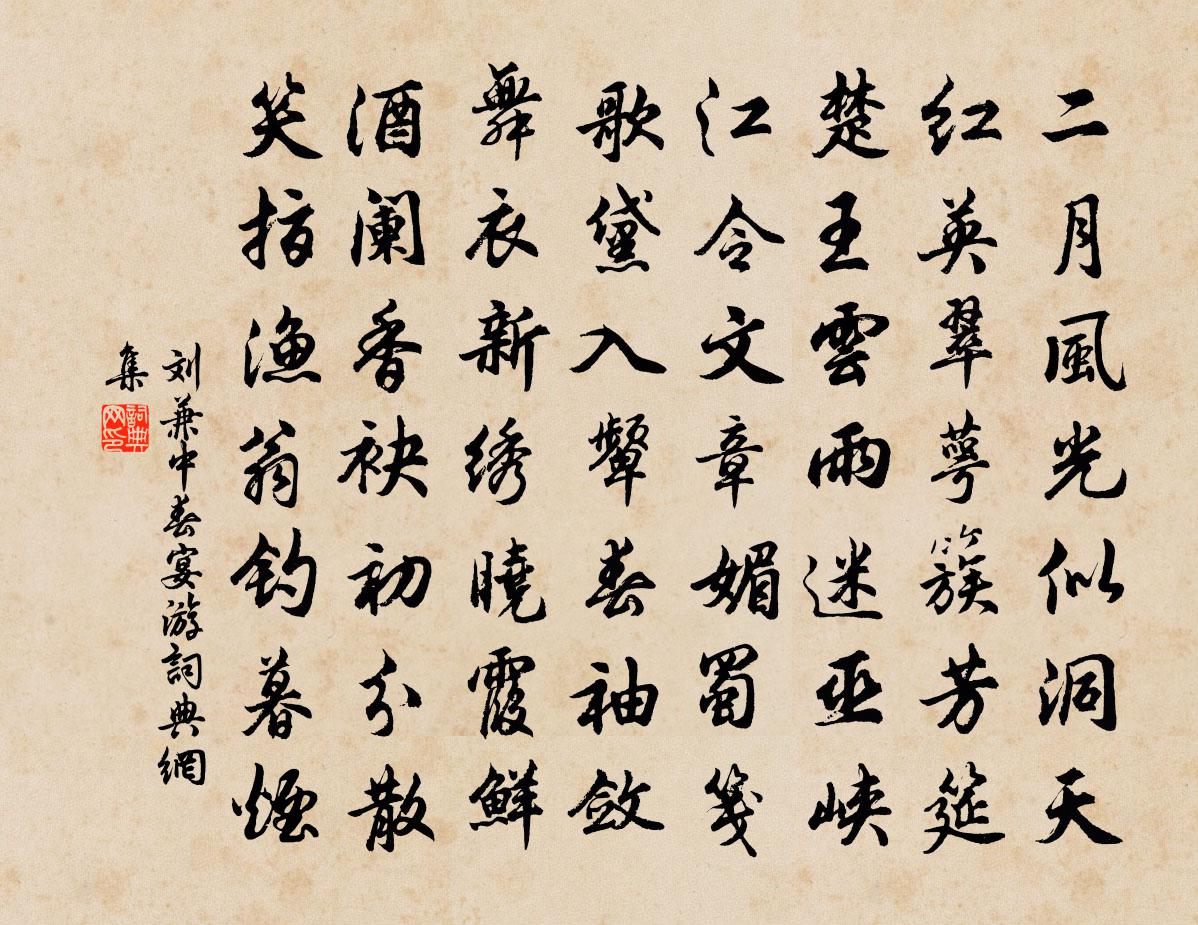 二月風光似洞天
红英翠萼簇芳筵
楚王雲雨迷巫峡
江令文章媚蜀箋
歌黛入顰春袖斂
舞衣新绣曉霞鮮
酒阑香袂初分散
笑指漁翁钓暮煙
刘兼中春宴游詞典網
集
詞典网印